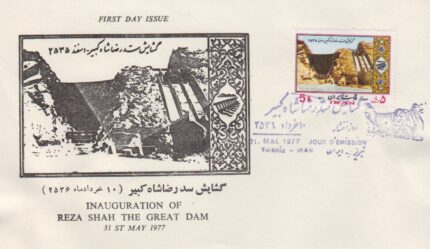 FIRST DAY ISSUE
گشایش سد رضاشاه کبیر: اسفند ۲۵۳۵
گشایش سد رضاشاه کبیر (۱۰ خردادماه ۲۵۳۶)
INAUGURATION OF
REZA SHAH THE GREAT DAM
31 ST MAY 1977
5R
۵
گشایش سد رضا شاه کبیر
روز انتشار
۱۰ خرداد ۲۵۳۶
31. MAI. 1977 JOUR D'EMISSION
تبریز - ایران
TABRIZ - IRAN